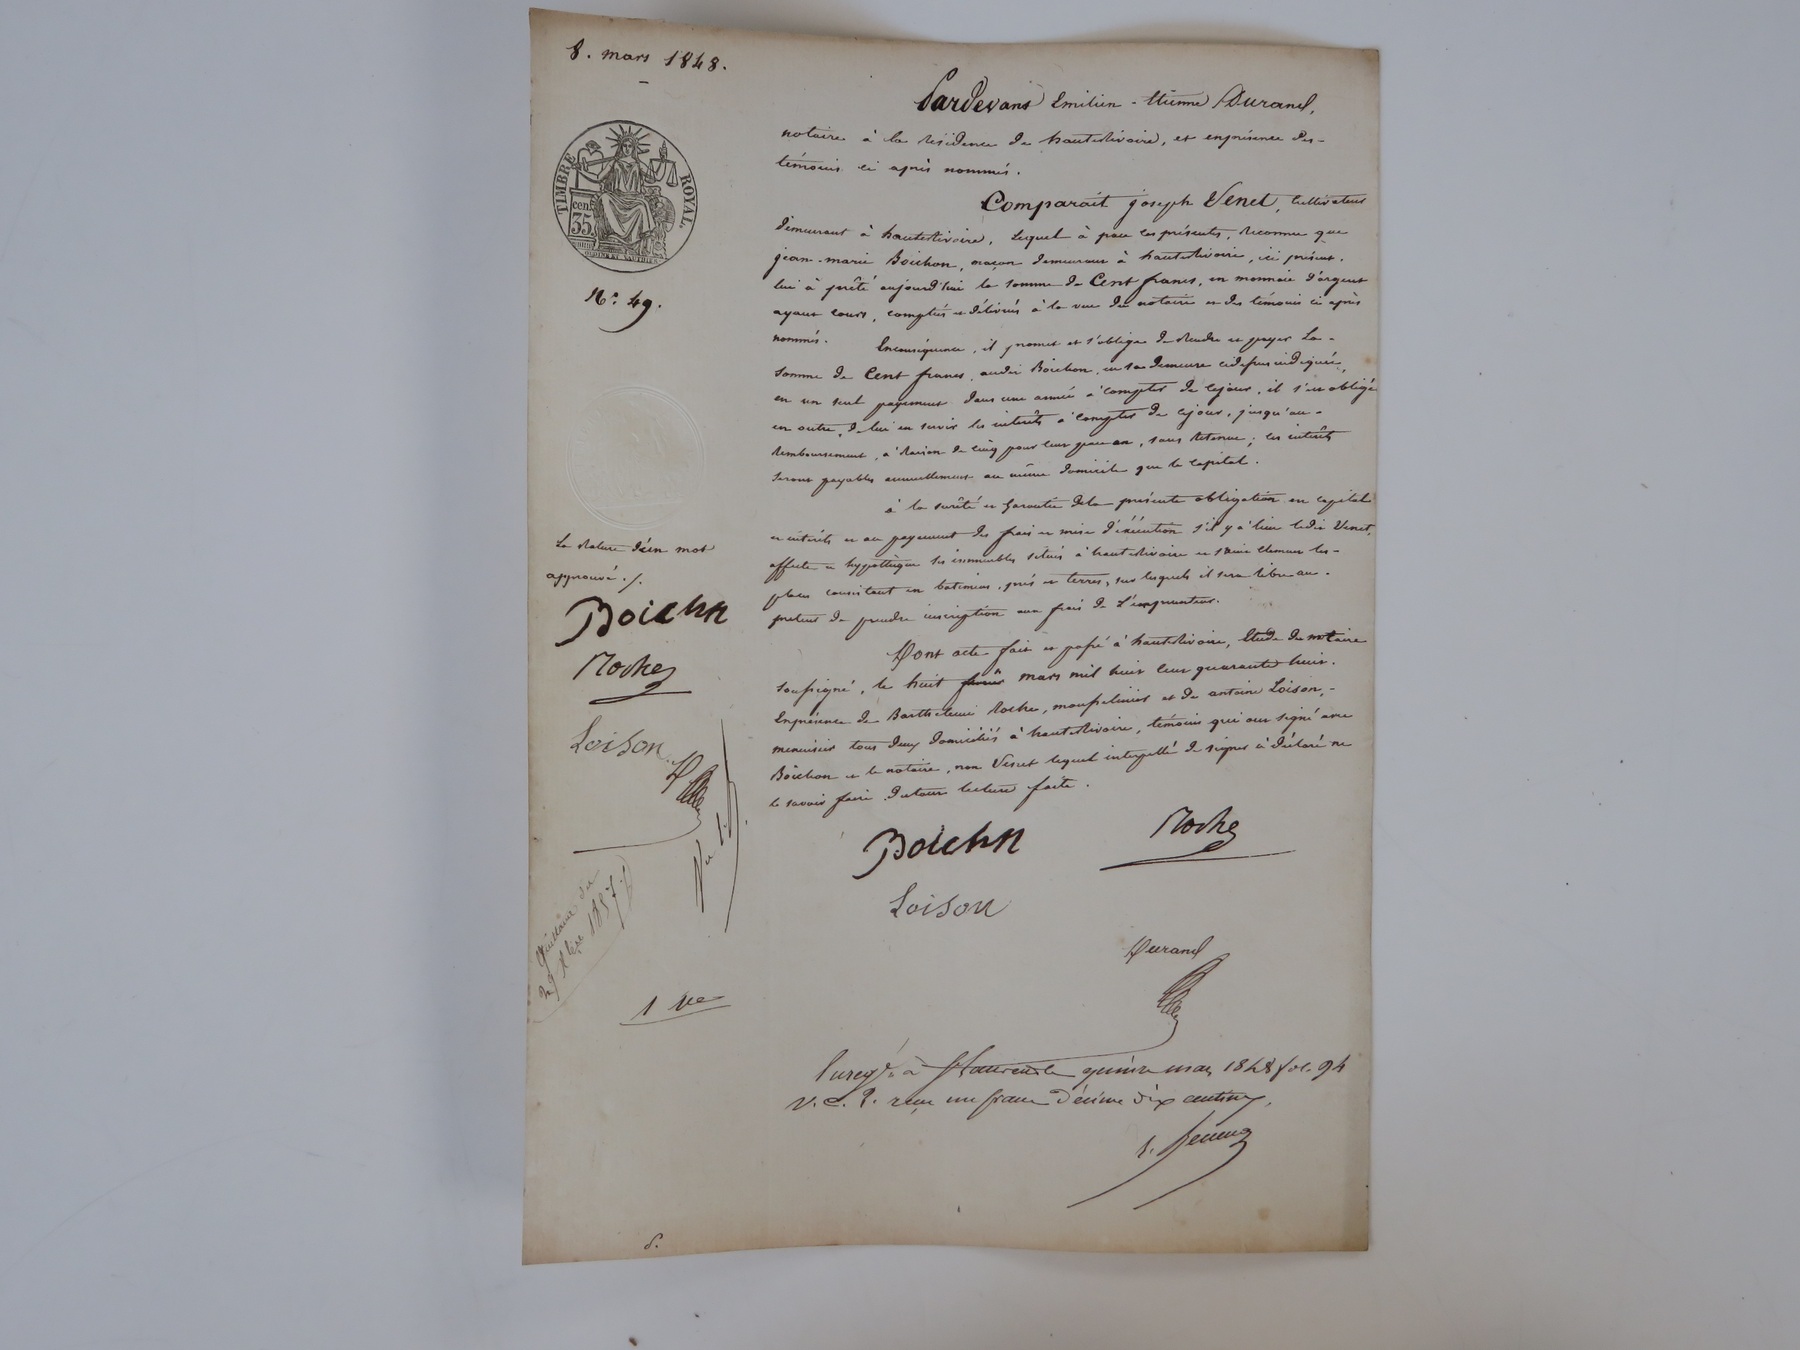 8. mars 1848.
Pardevant Emilien - Etienne Durand,
notaire à la résidence de hauterivoire, et enprésence des-
témoins ci après nommés.
TIMBRE ROYAL
cent. 35
No. 49.
Comparait joseph Venet, cultivateur
demeurant à hauterivoire, lequel à par ces présentes, reconnu que
jean-marie Boichon, maçon demeurant à hauterivoire, ici présent.
lui à prêté aujourd'hui la somme de Cent francs, en monnaie d'argent
ayant cours, comptés et délivrés à la vue du notaire et des témoins ci après
nommés. Enconséquence, il promet et s'oblige de rendre et payer La-
somme de Cent francs, audit Boichon, en sa demeure cidessus indiquée,
en un seul payement dans une année à compter de cejour, il s'est obligé
en outre, de lui en servir les intérêts à compter de cejour, jusqu'au-
remboursement, à raison de cinq pour cent par an, sans retenue; ces intérêts
seront payables annuellement au même domicile que le capital.
à la sureté et garantie dela présente obligation en capital
et intérêts et au payement des frais et mise d'éxécution s'il y a lieu ledit Venet,
affecte et hypothèque ses immeubles situés à hauterivoire et sainte clément les-
places consistant en batiments, prés et terres, sur lesquels il sera libre au.
preteur de prendre inscription aux frais de L'emprunteur.
Dont acte fait et passé à hauterivoire, Etude du notaire
soussigné, le huit mars mil huit cent quarante huit.
Enprésence de Barthelemi Roche, et de antoine Loison,-
menuisier tous deux domiciliés à hauterivoire, témoins qui ont signé avec
Boichon et le notaire, non Venet lequel interpellé de signer à déclaré ne
le savoir faire. Dutout lecture faite.
La rature d'un mot
approuvé ./.
Boichn
Roche
Loison
Boichn Roche
Loison
Durand
Quittance du
1857
1 re
Enregé. à St Laurent le quinze mars 1848 fol. 94
V. C. 2. reçu un franc décime dix centimes,